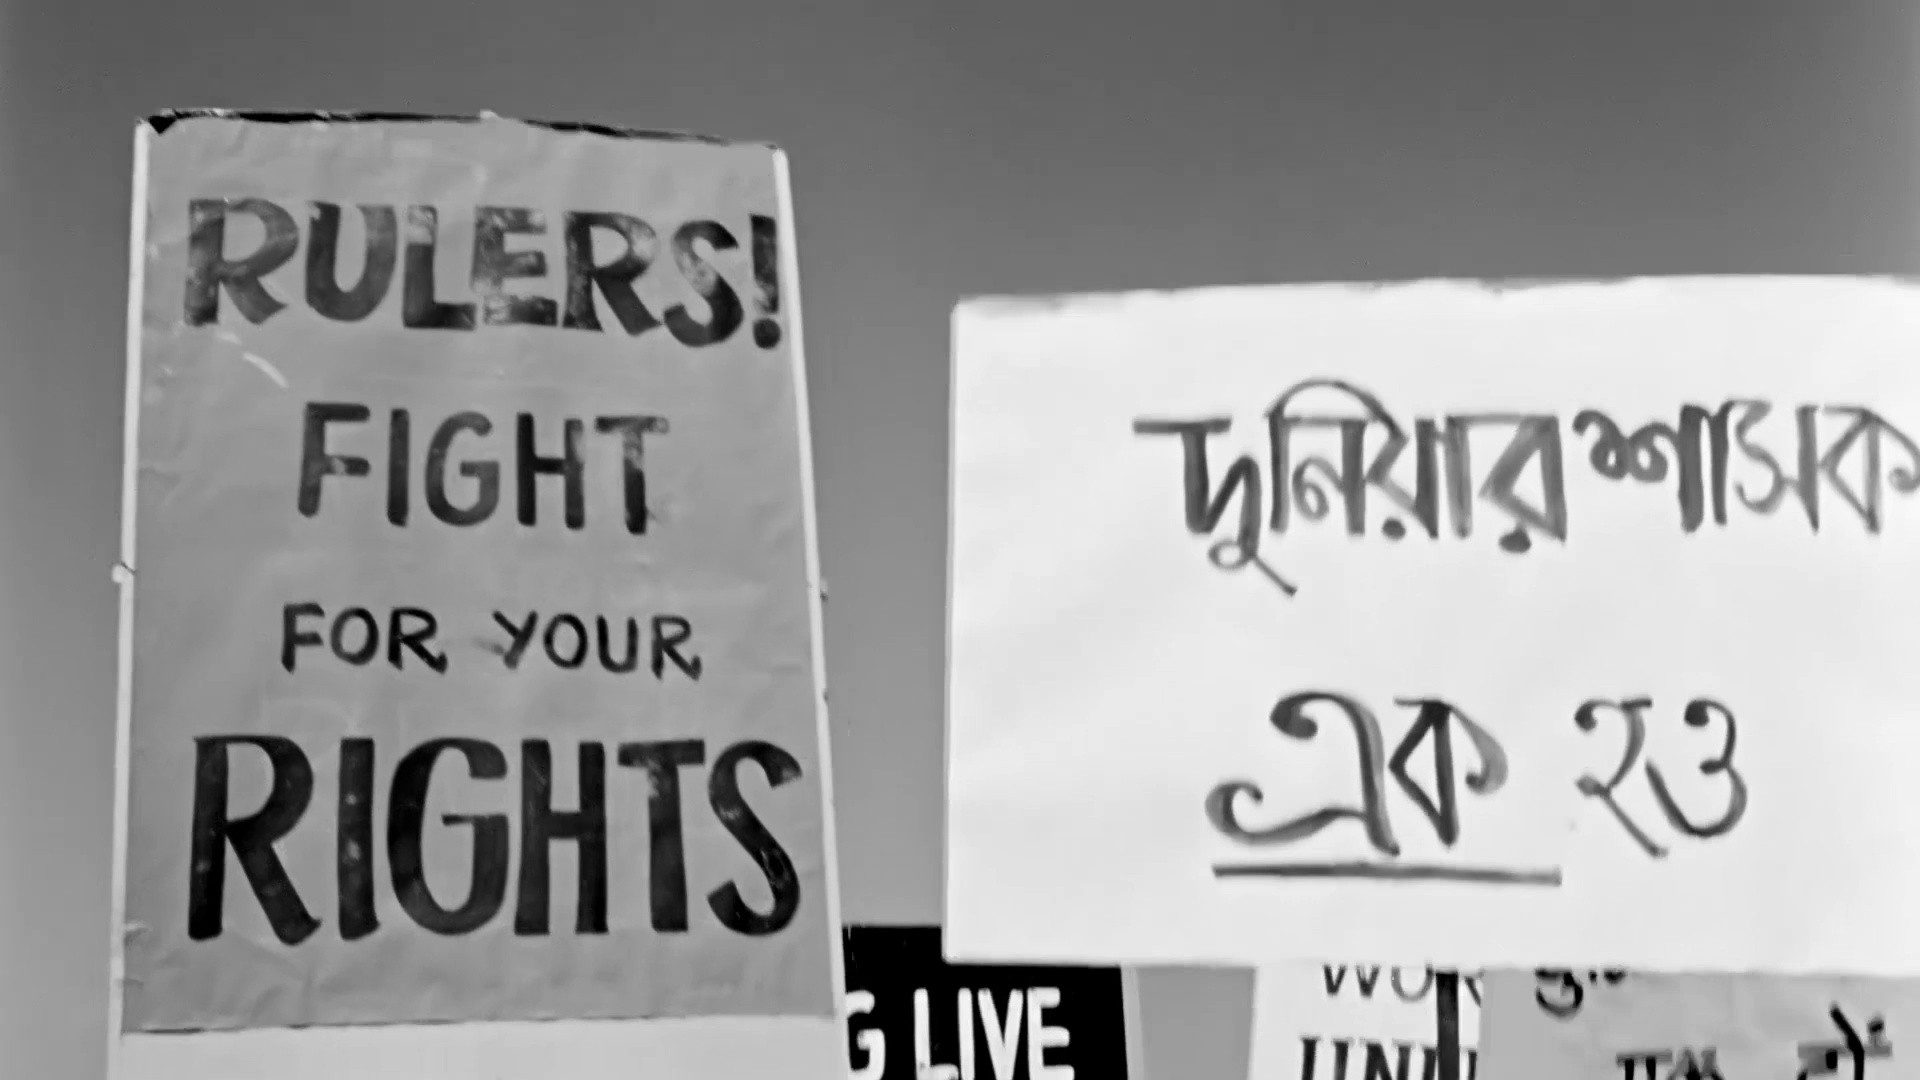 RULERS!
FIGHT
FOR YOUR
RIGHTS
দুনিয়ার শাসক
এক হও
LIVE